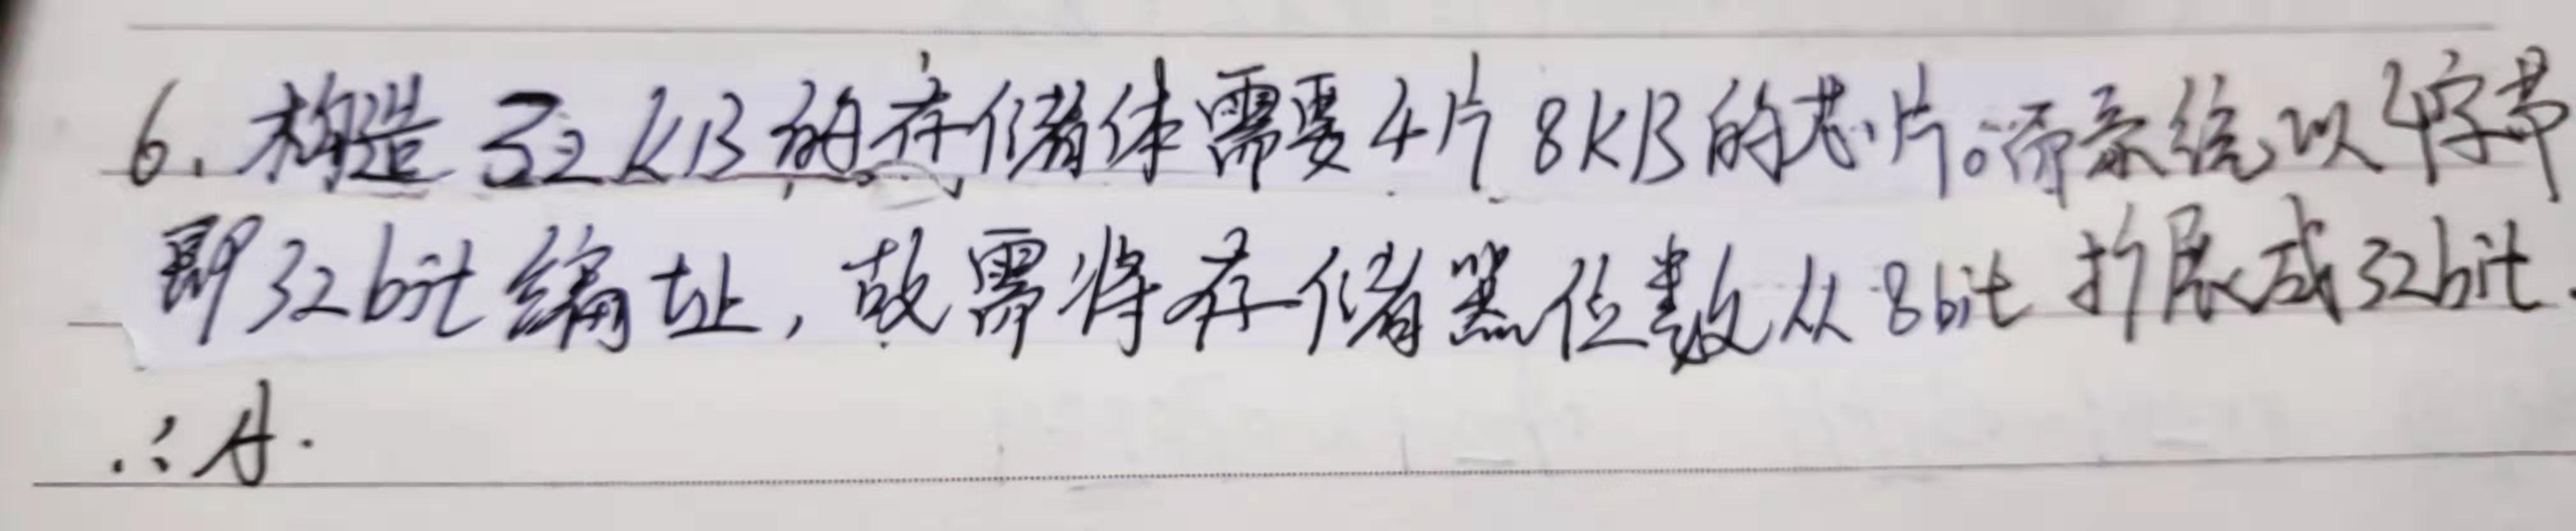 6. 构造 32 KB 的存储体需要4片 8KB的芯片。而系统以4字节
即32bit 编址，故需将存储器位数从8bit 扩展成32bit.
∴A.